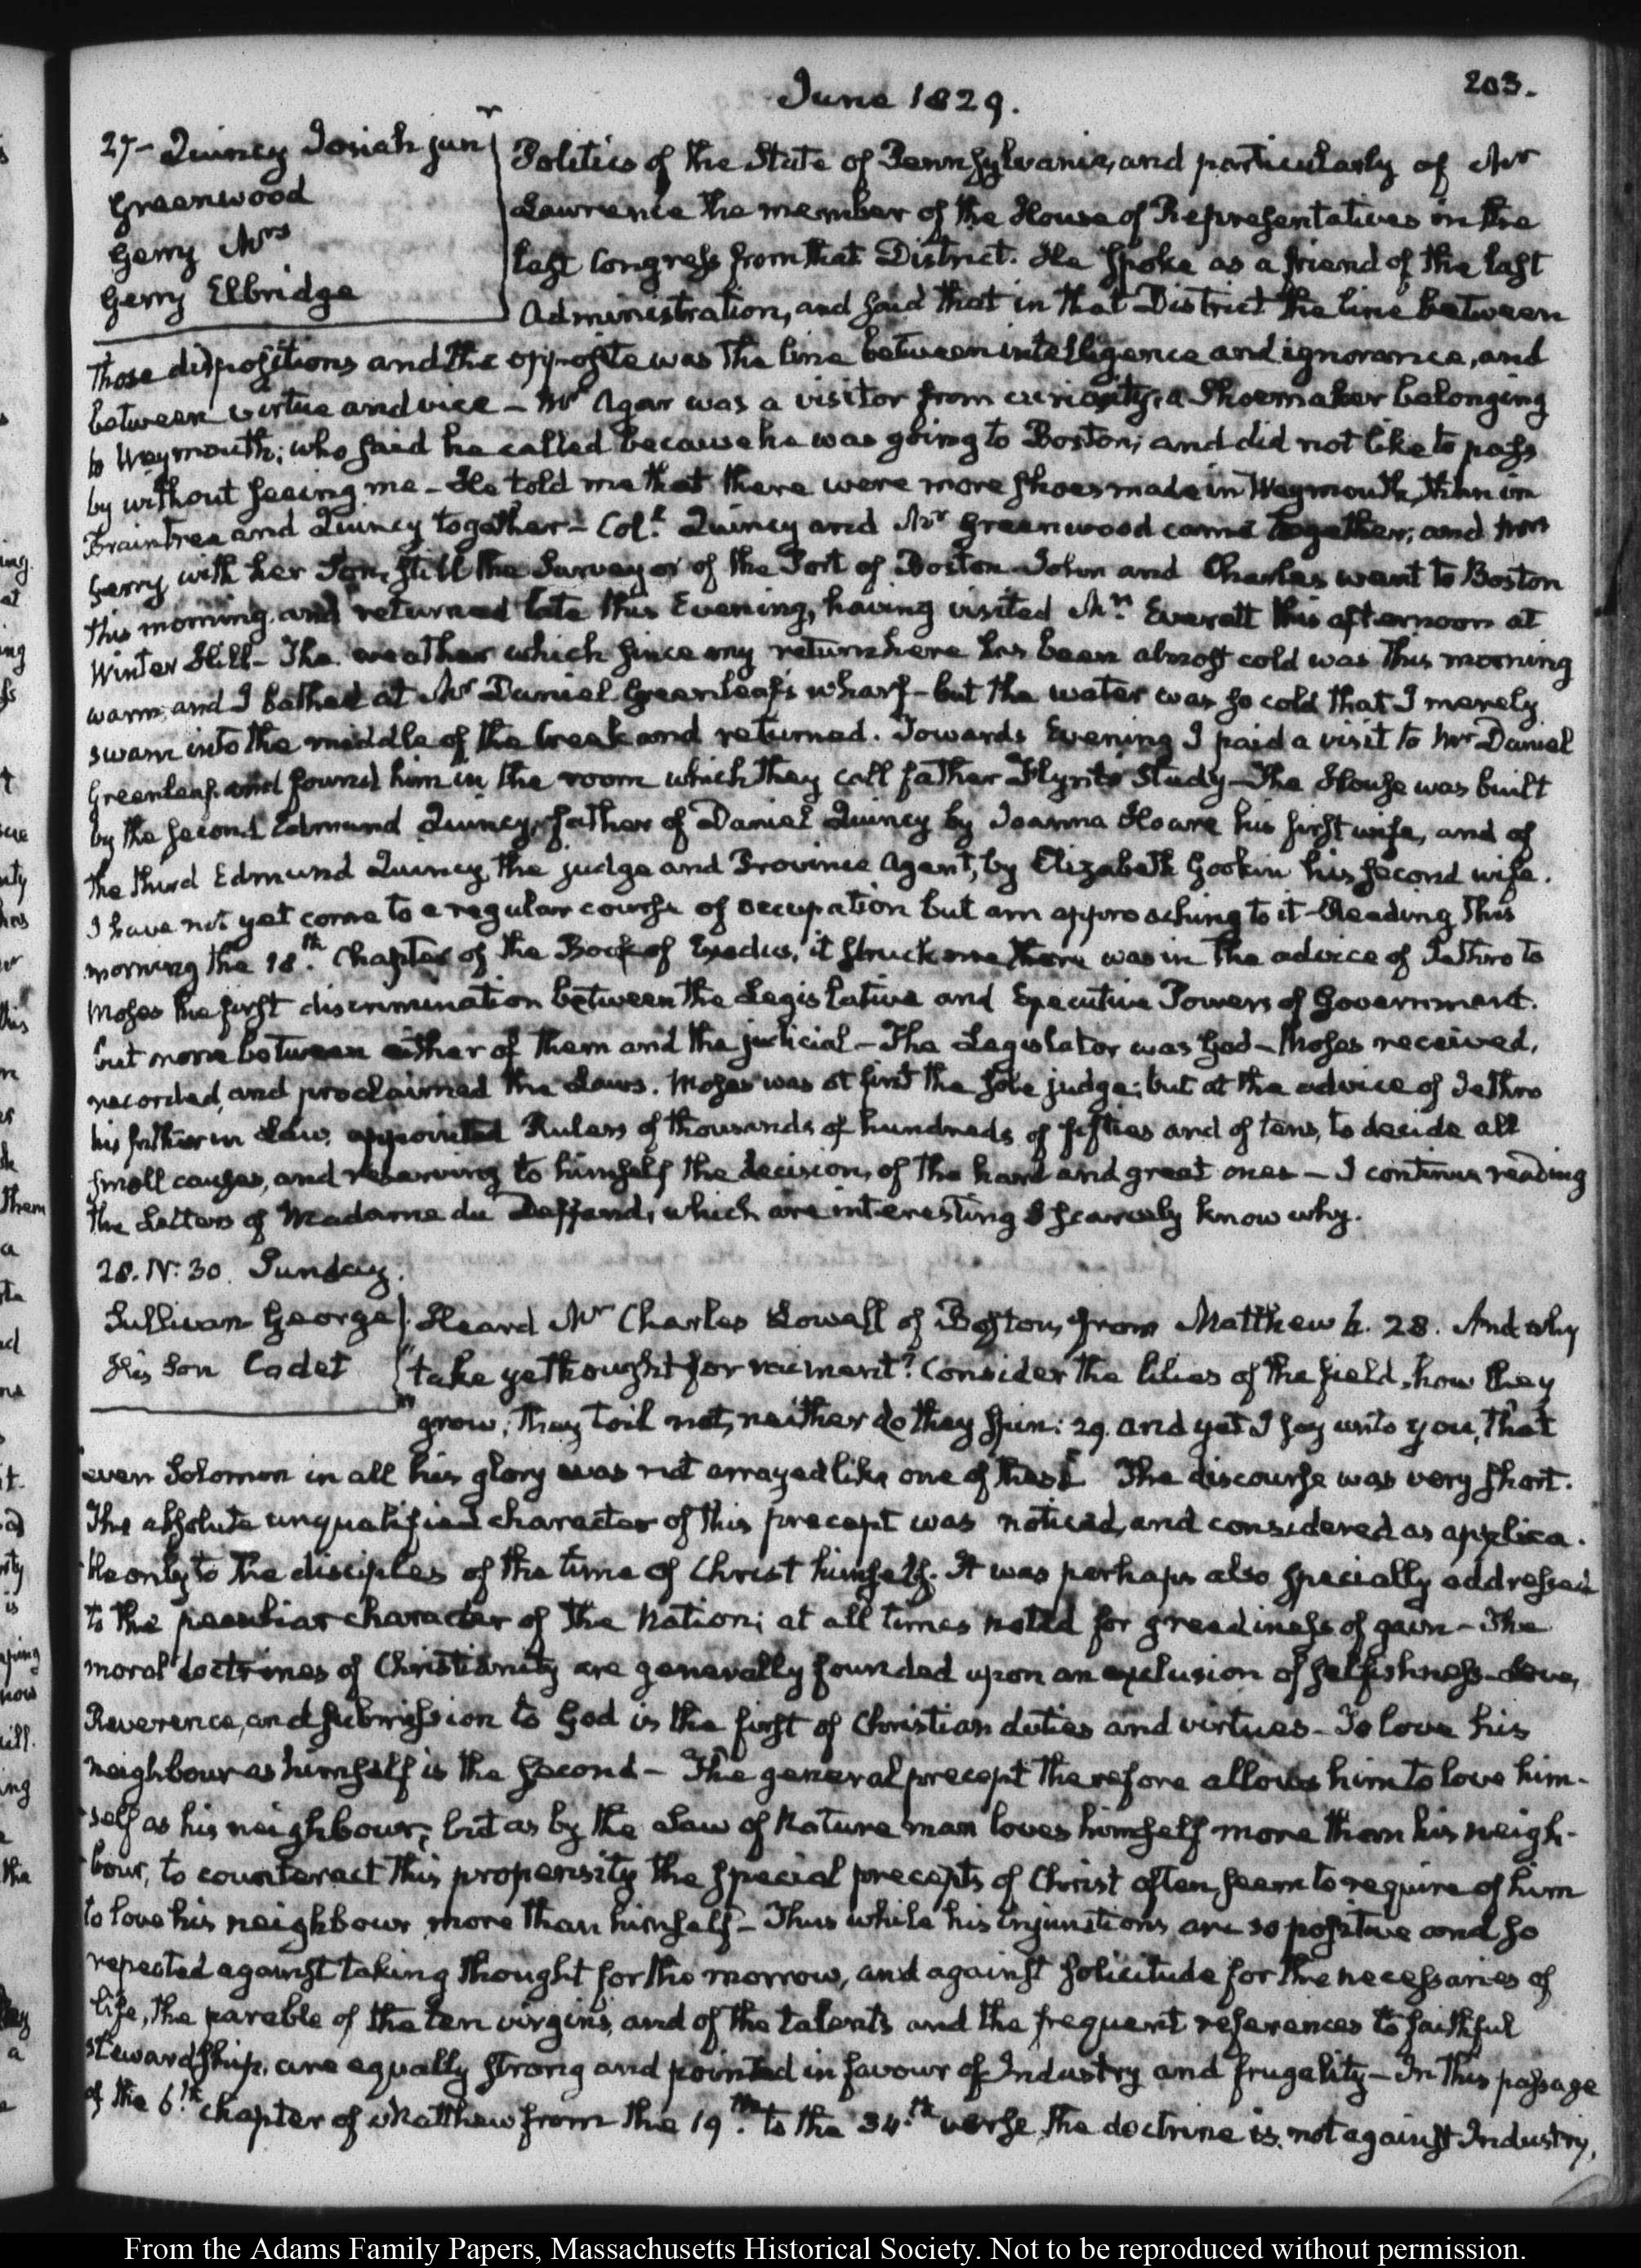 203.
June 1829.
27- Quincy Josiah junr
Greenwood
Gerry Mrs
Gerry Elbridge
Politics of the State of Pennsylvania, and particularly of Mr
Lawrence the member of the House of Representatives in the
last Congress from that District. He spoke as a friend of the last
Administration, and said that in that District the line between
those dispositions and the opposite was the line between intelligence and ignorance, and
between virtue and vice - Mr Agar was a visitor from curiosity; a Shoemaker belonging
to Weymouth; who said he called because he was going to Boston; and did not like to pass
by without seeing me - He told me that there were more shoes made in Weymouth, than in
Braintree and Quincy together - Coll. Quincy and Mr Greenwood came together; and Mrs
Gerry with her Son, still the Surveyor of the Port of Boston - John and Charles went to Boston
this morning and returned late this Evening, having visited Mrs. Everett this afternoon at
Winter Hill - The weather which since my return here has been almost cold was this morning
warm, and I bathed at Mr Daniel Greenleaf's wharf - but the water was so cold that I merely
swam into the middle of the Creek and returned. Towards Evening I paid a visit to Mr Daniel
Greenleaf, and found him in the room which they call father Flynt's Study - The House was built
by the second Edmund Quincy, father of Daniel Quincy by Joanna Hoare his first wife, and of
the third Edmund Quincy, the judge and Province Agent, by Elizabeth Gookin his second wife.
I have not yet come to a regular course of occupation but am approaching to it - Reading this
morning the 18.th Chapter of the Book of Exodus, it struck me there was in the advice of Jethro to
Moses the first discrimination between the Legislative and Executive Powers of Government.
but none between either of them and the judicial - The Legislator was God - Moses received,
recorded, and proclaimed the Laws. Moses was at first the sole judge; but at the advice of Jethro
his father in Law, appointed Rulers of thousands of hundreds of fifties and of tens, to decide all
small causes, and reserving to himself the decision, of the hard and great ones - I continue reading
the Letters of Madame du Deffand, which are interesting I scarcely know why.
28. IV:30. Sunday.
Sullivan George
His Son Cadet
Heard Mr Charles Lowell of Boston, from Matthew 6. 28. And why
"take ye thought for raiment? Consider the lilies of the field, how they
"grow; they toil not, neither do they spin: 29. and yet I say unto you, That
even Solomon in all his glory was not arrayed like one of these" The discourse was very short.
The absolute unqualified character of this precept was noticed, and considered as applica-
-ble only to the disciples of the time of Christ himself. It was perhaps also specially addressed
to the peculiar character of the Nation; at all times noted for greediness of gain - The
moral doctrines of Christianity are generally founded upon an exclusion of selfishness - Love,
Reverence, and submission to God is the first of Christian duties and virtues - To love his
neighbour as himself is the second - The general precept therefore allows him to love him-
-self as his neighbour; but as by the Law of Nature man loves himself more than his neigh-
-bour, to counteract this propensity the special precepts of Christ often seem to require of him
to love his neighbour more than himself - Thus while his injunctions are so positive and so
repeated against taking thought for the morrow, and against solicitude for the necessaries of
life, the parable of the ten virgins, and of the talents and the frequent references to faithful
stewardship, are equally strong and pointed in favour of Industry and frugality - In this passage
of the 6.th chapter of Matthew from the 19.th to the 34.th verse, the doctrine is, not against Industry,
From the Adams Family Papers, Massachusetts Historical Society. Not to be reproduced without permission.